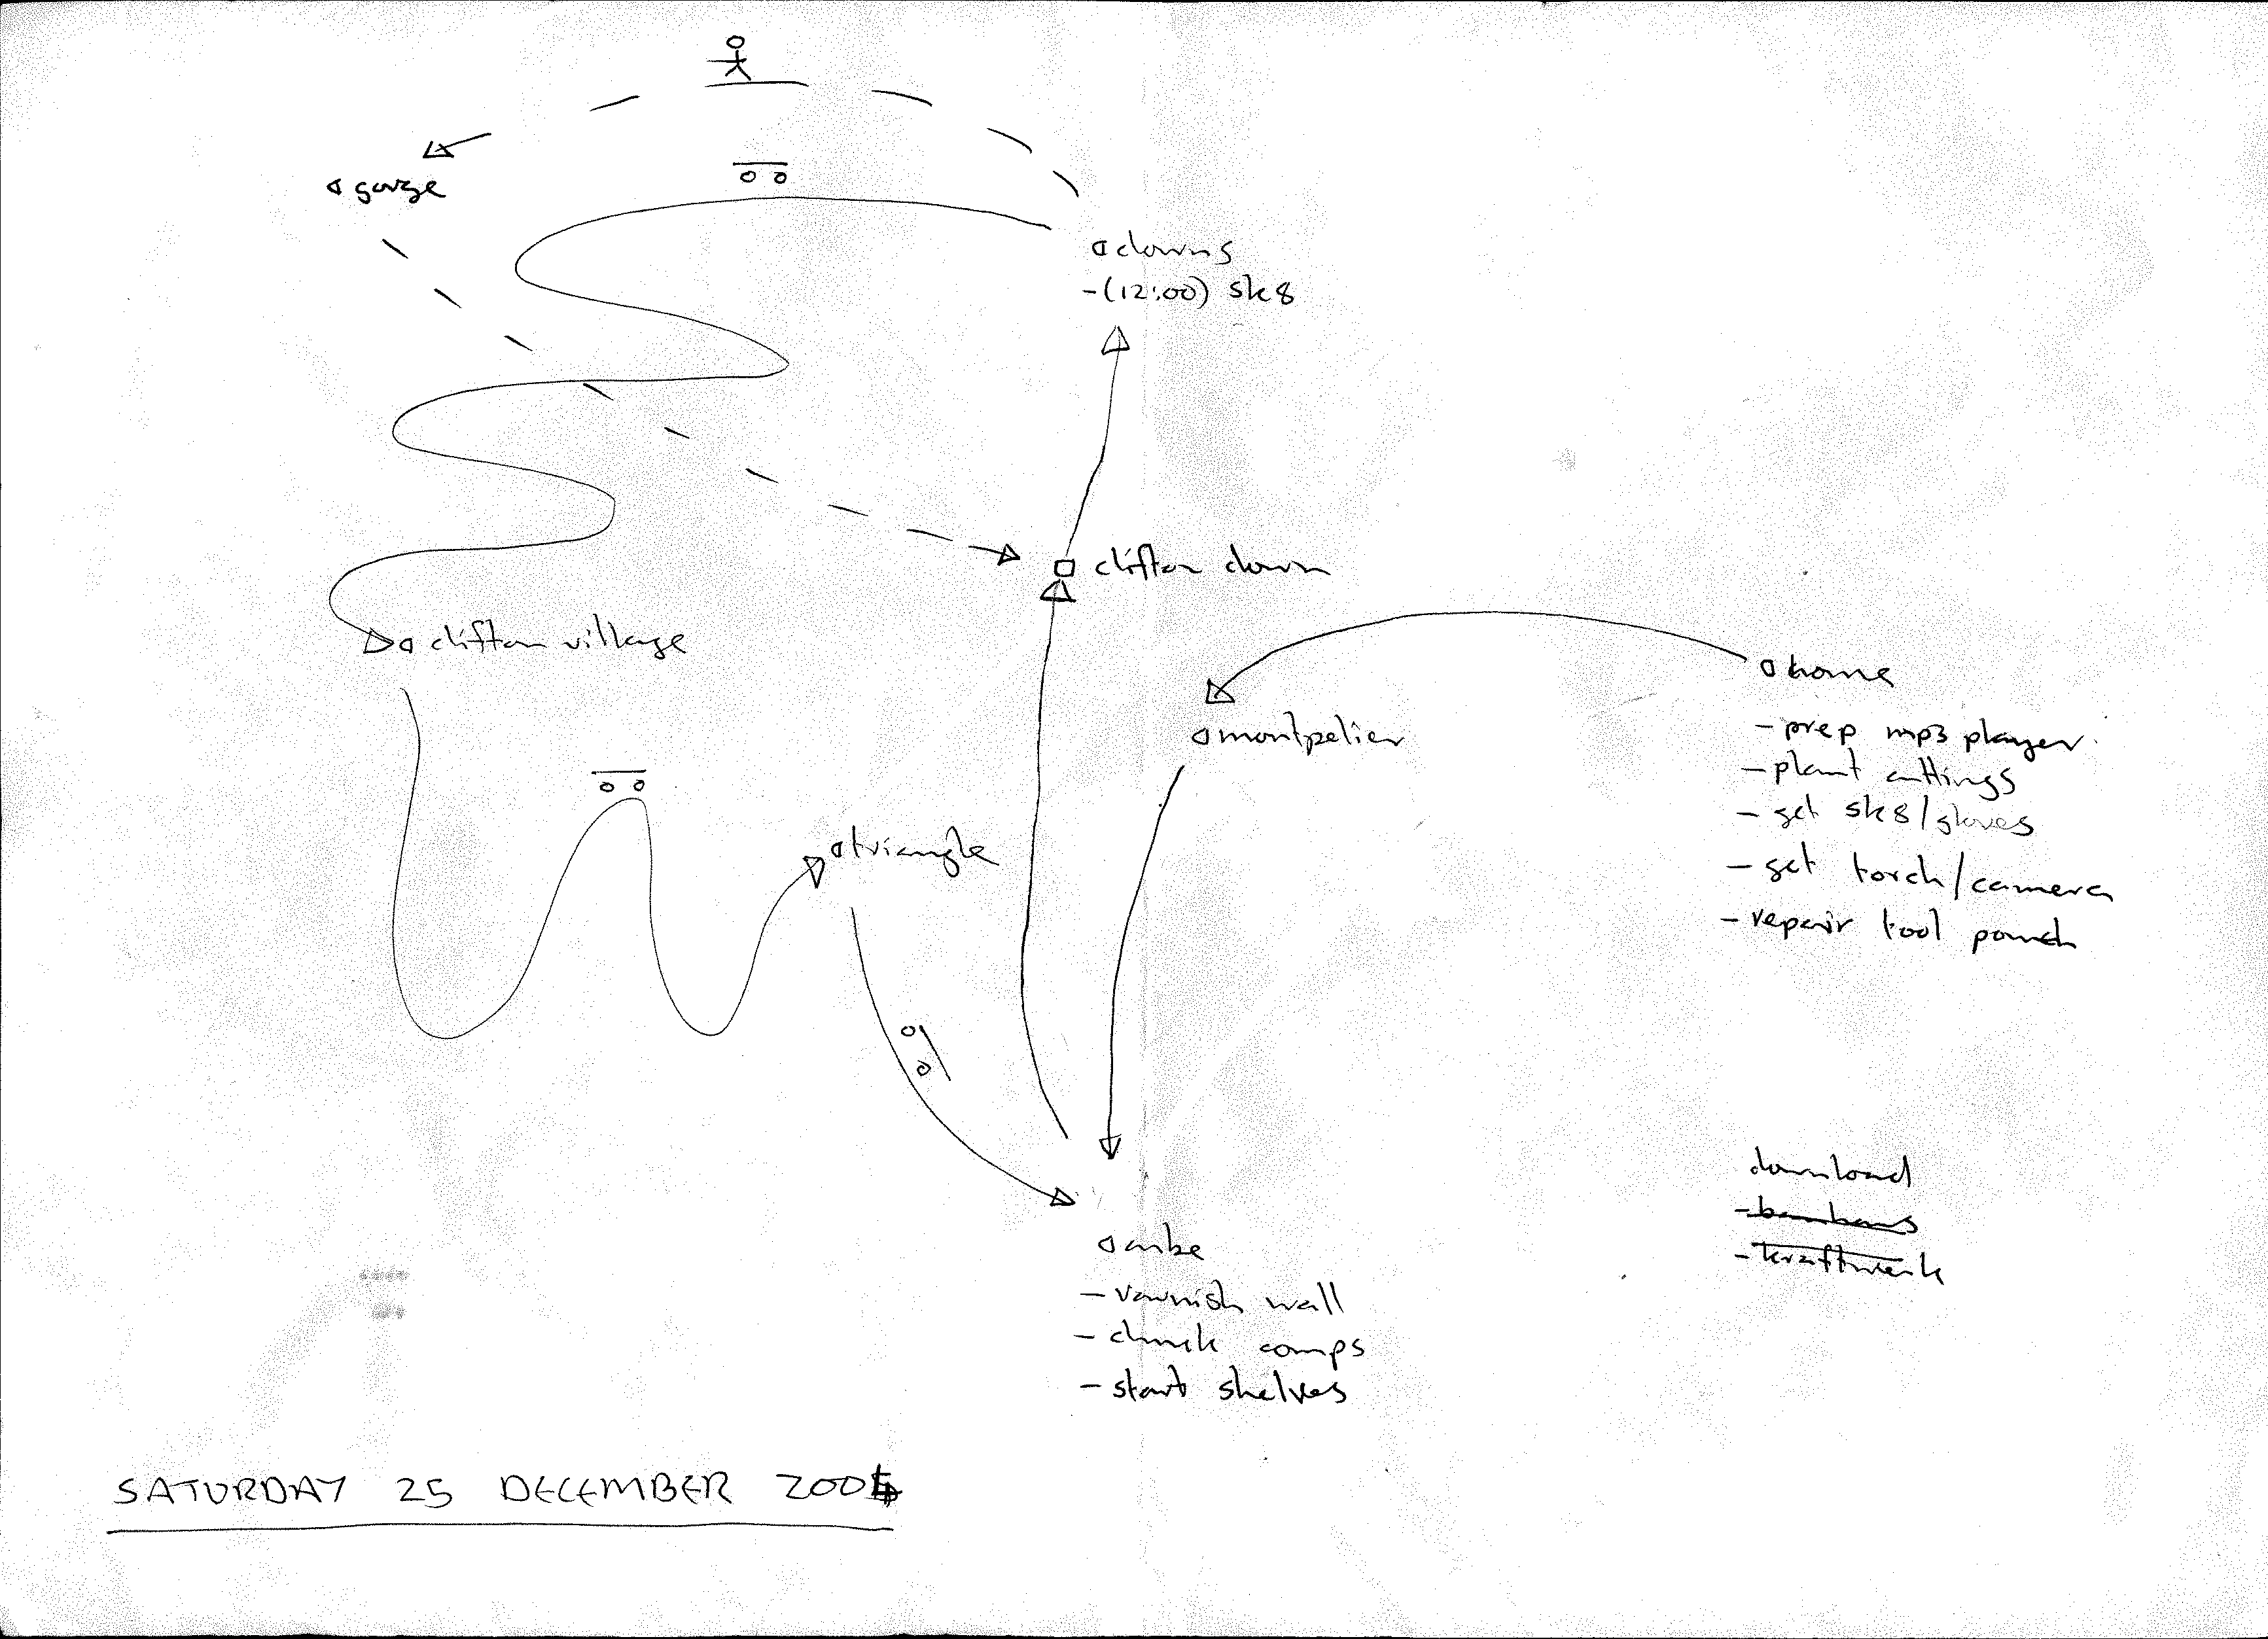 gorge
downs
-(12:00) sk8
clifton down
clifton village
home
- prep mp3 player
- plant cuttings
- get sk8/gloves
- get torch/camera
- repair tool pouch
montpelier
triangle
download
- bauhaus
- kraftwerk
cube
- varnish wall
- chuck comps
- start shelves
SATURDAY 25 DECEMBER 2004